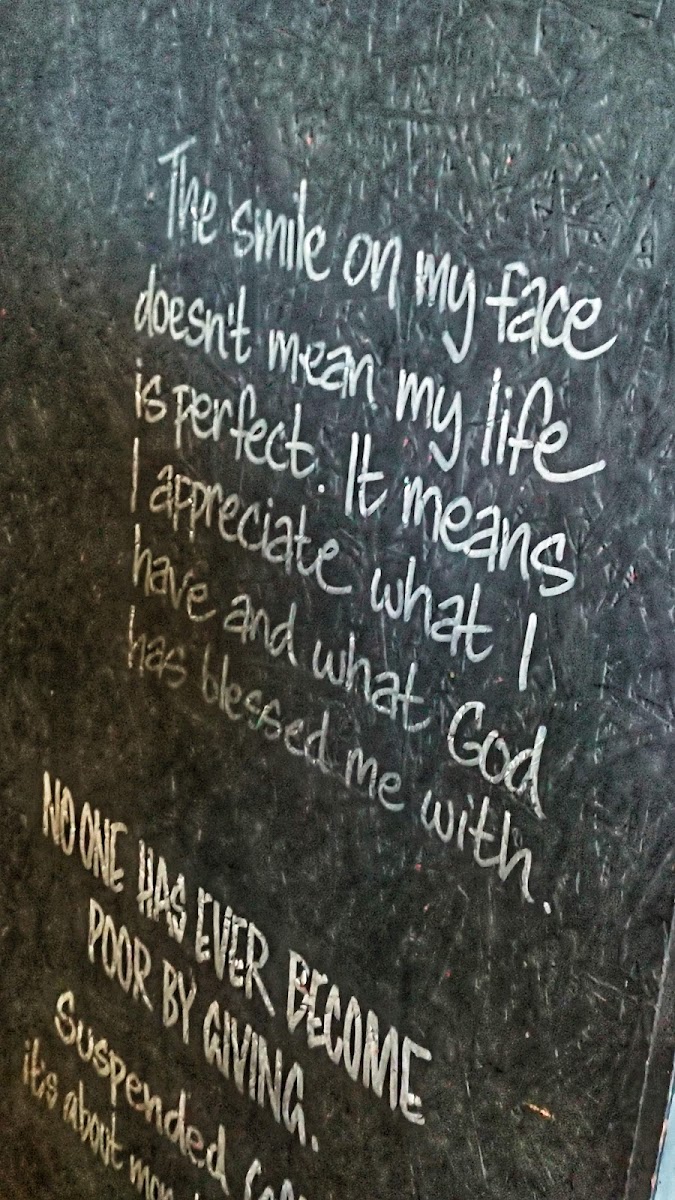 The smile on my face
doesn't mean my life
is perfect. It means
I appreciate what I
have and what God
has blessed me with.
NO ONE HAS EVER BECOME
POOR BY GIVING.
Suspended
it's about